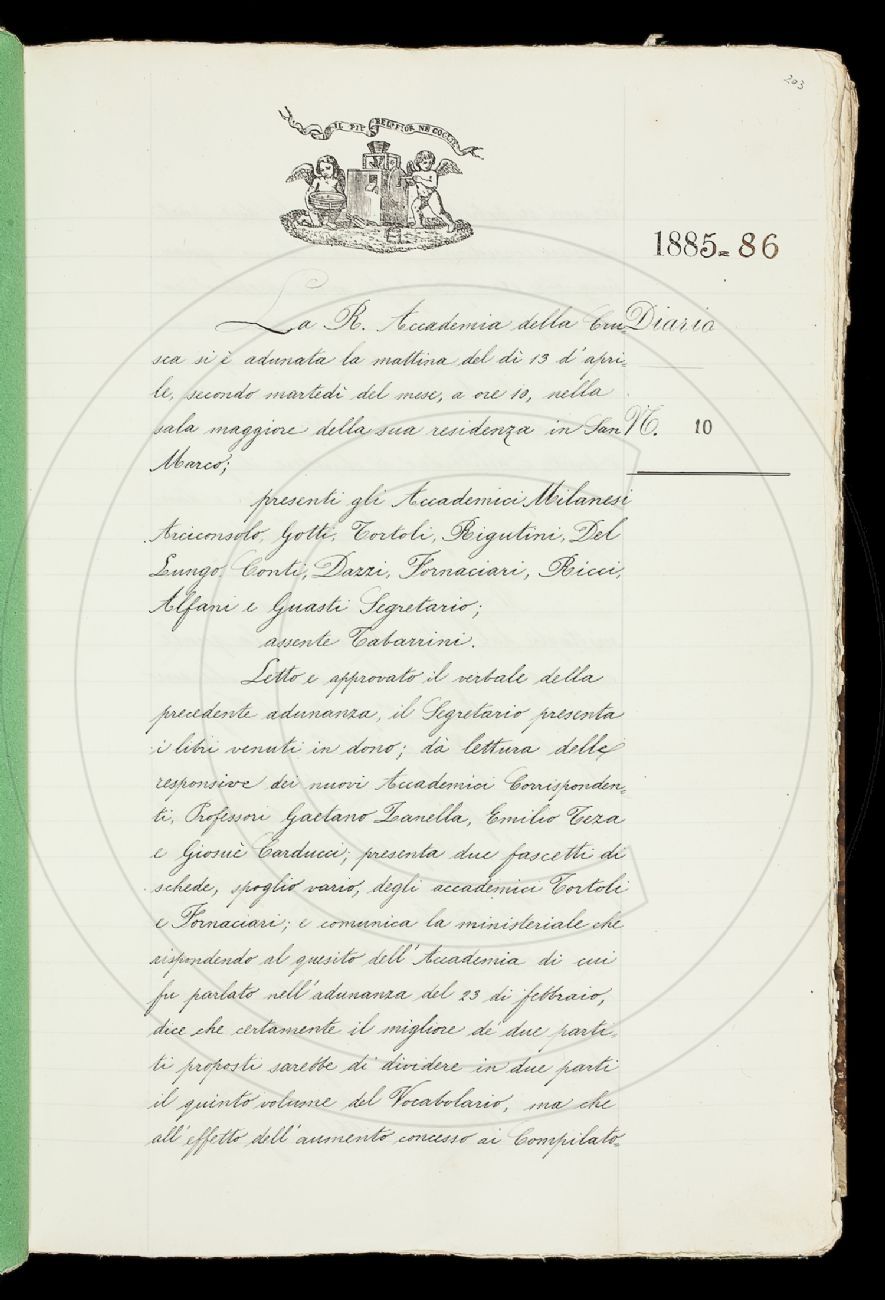 203
IL PIÙ BEL FIOR NE COGLIE
1885=86
La R. Accademia della Cru= Diario
sca si è adunata la mattina del dì 13 d'apri=
le, secondo martedì del mese, a ore 10, nella
sala maggiore della sua residenza in San N. 10
Marco;
presenti gli Accademici Milanesi
Arciconsolo, Gotti, Tortoli, Rigutini, Del
Lungo, Conti, Dazzi, Fornaciari, Ricci,
Alfani e Guasti Segretario;
assente Tabarrini.
Letto e approvato il verbale della
precedente adunanza, il Segretario presenta
i libri venuti in dono; dà lettura delle
responsive dei nuovi Accademici Corrisponden=
ti, Professori Gaetano Zanella, Emilio Teza
e Giosuè Carducci; presenta due fascetti di
schede, spoglio vario, degli accademici Tortoli
e Fornaciari; e comunica la ministeriale che
rispondendo al quesito dell'Accademia di cui
fu parlato nell'adunanza del 23 di febbraio,
dice che certamente il migliore de' due parti=
ti proposti sarebbe di dividere in due parti
il quinto volume del Vocabolario, ma che
all'effetto dell'aumento concesso ai Compilato=